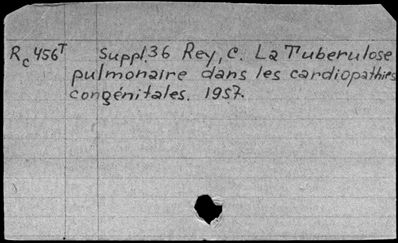 Rc 456T Suppl.36 Rey, C. La Tuberulose
pulmonaire dans les cardiopathies
congénitales. 1957.